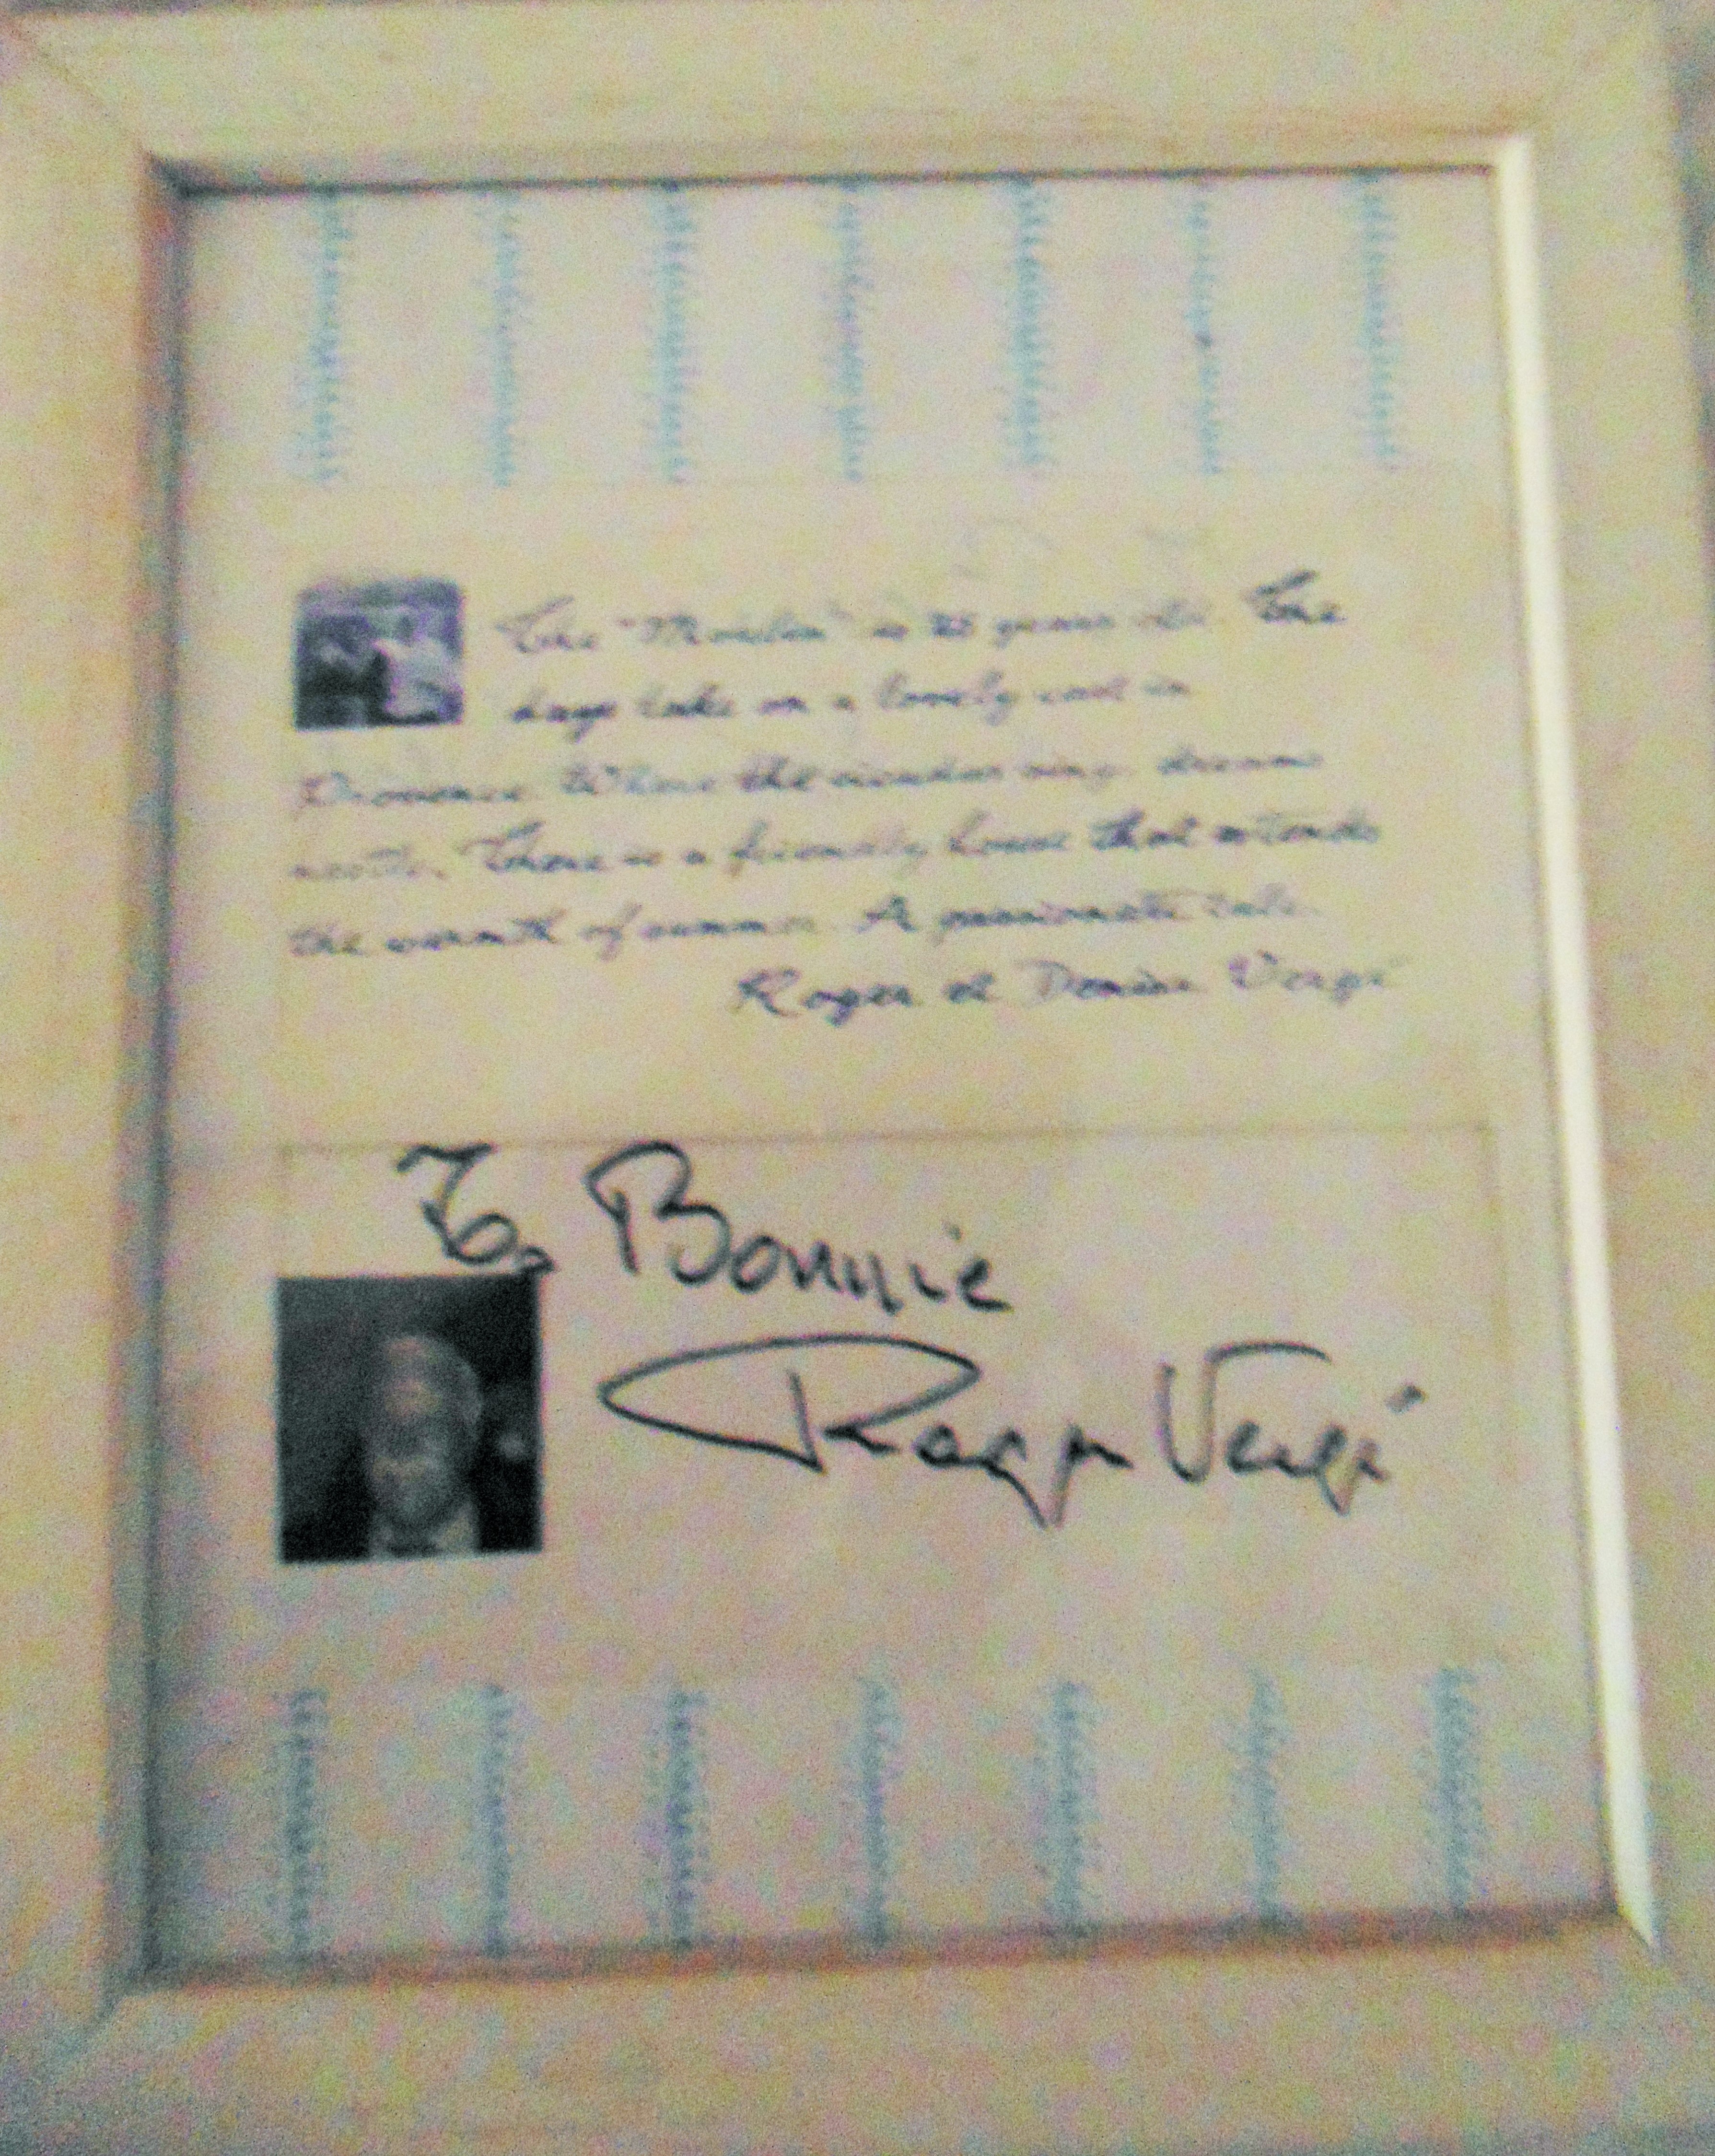 The "Moulin" is 25 years old. The
days take on a lovely cast in
Provence. Where the cicadas sing, dreams
nestle. There is a friendly house that extends
the warmth of summer. A passionate tale.
Roger et Denise Vergé
To Bonnie
Roger Vergé